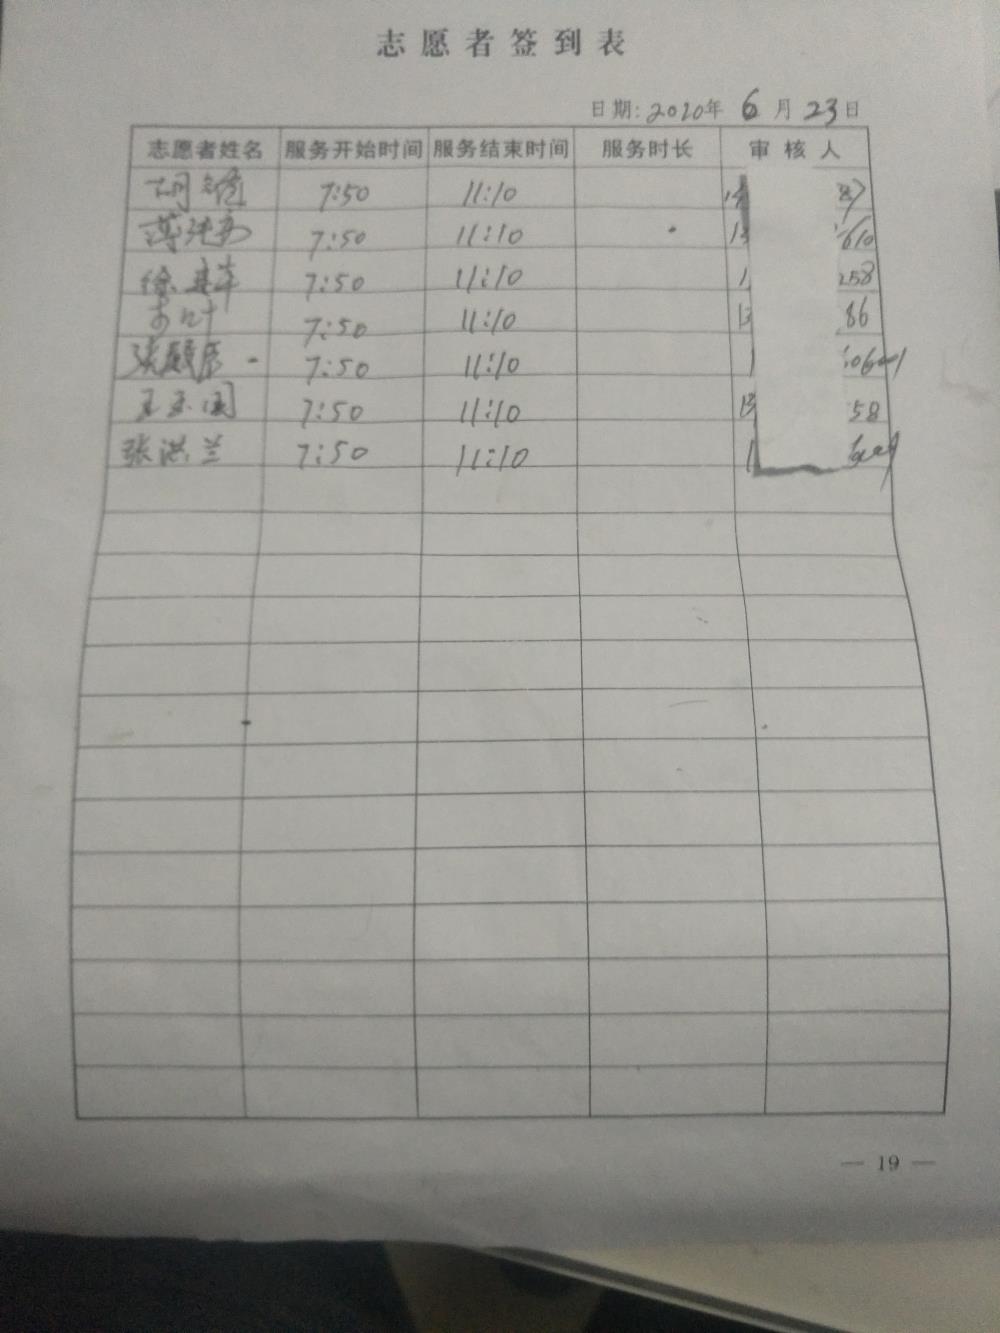 志愿者签到表
日期: 2020年 6 月 23日
志愿者姓名 服务开始时间 服务结束时间 服务时长 审核人
胡 7:50 11:10
7:50 11:10 610
徐 7:50 11:10 1 258
7:50 11:10 13 86
张 7:50 11:10 1
王玉国 7:50 11:10 13 58
张洪兰 7:50 11:10 1
— 19 —